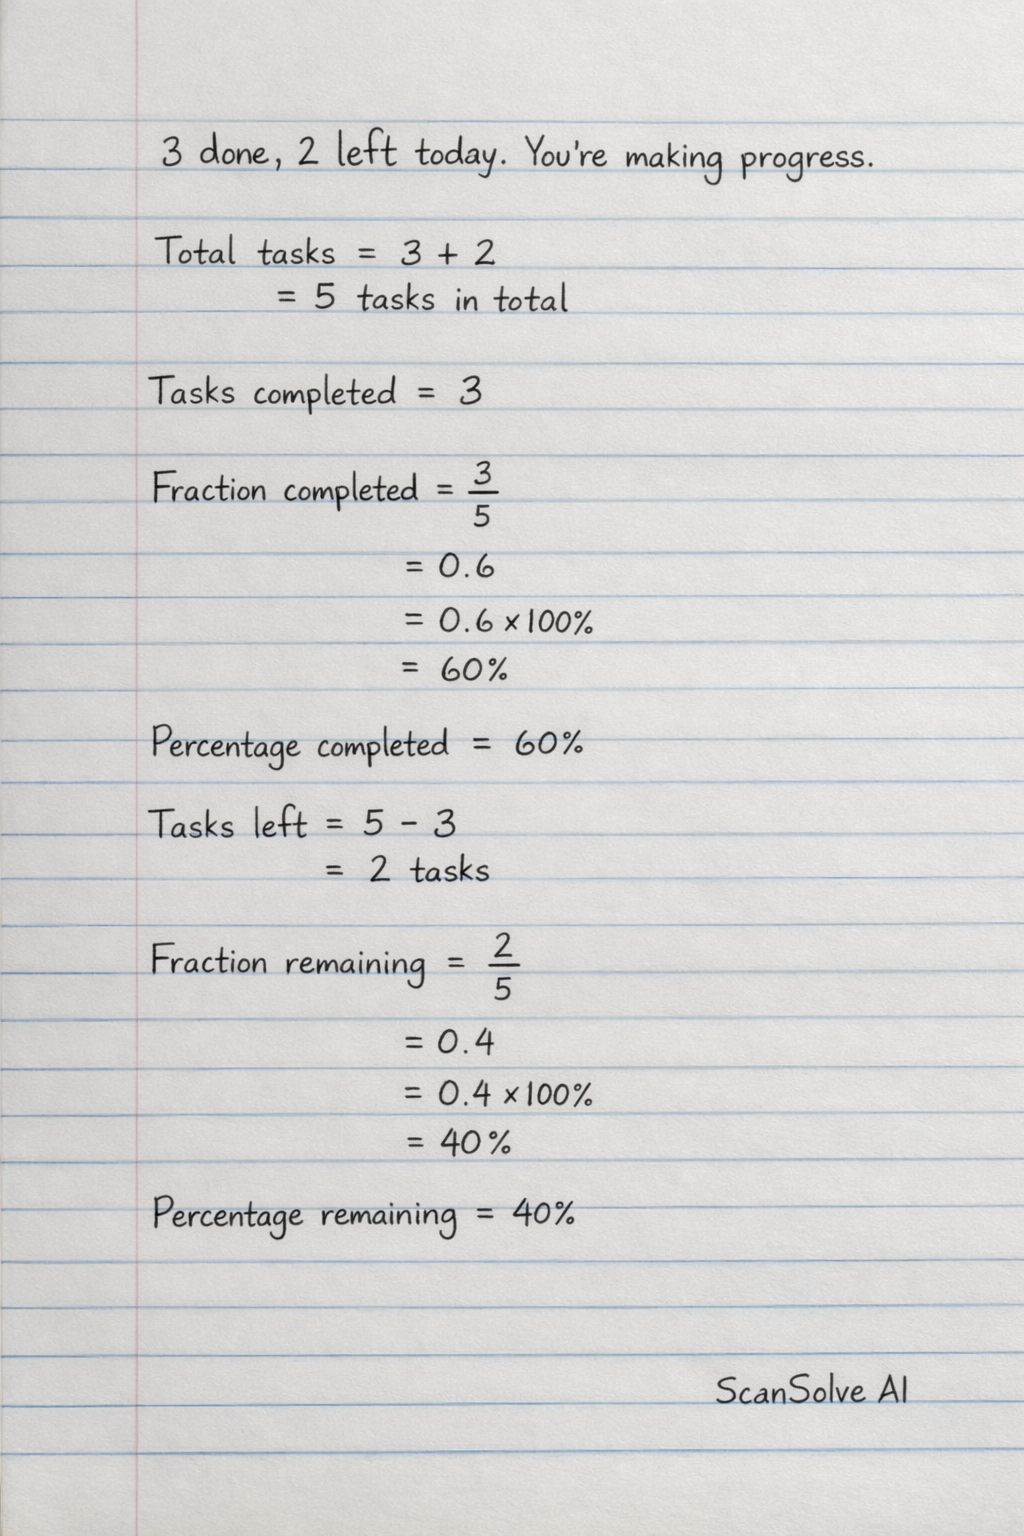 3 done, 2 left today. You're making progress.
Total tasks = 3 + 2
= 5 tasks in total
Tasks completed = 3
Fraction completed = 3/5
= 0.6
= 0.6 × 100%
= 60%
Percentage completed = 60%
Tasks left = 5 - 3
= 2 tasks
Fraction remaining = 2/5
= 0.4
= 0.4 × 100%
= 40%
Percentage remaining = 40%
ScanSolve AI